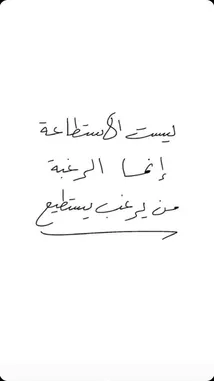 ليست الأستطاعة
إنما الرغبة
من يرغب يستطيع